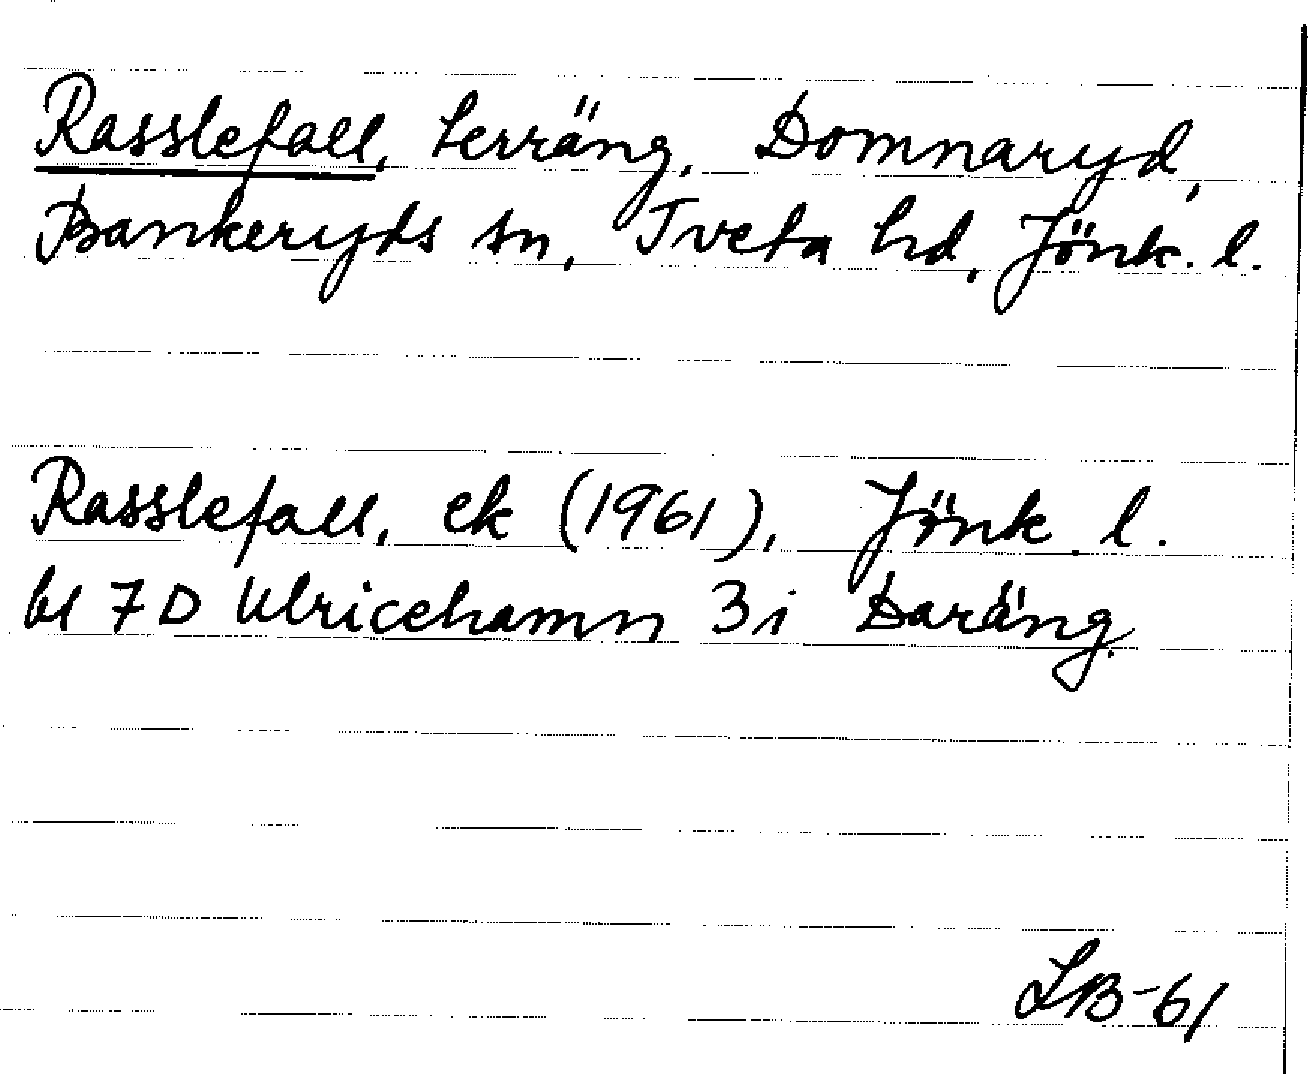 Rasslefall, terräng, Domnaryd,
Bankeryds sn, Tveta hd, Jönk. l.
Rasslefall, ek (1961), Jönk. l.
bl 7D Ulricehamn 3i Daräng.
LB-61